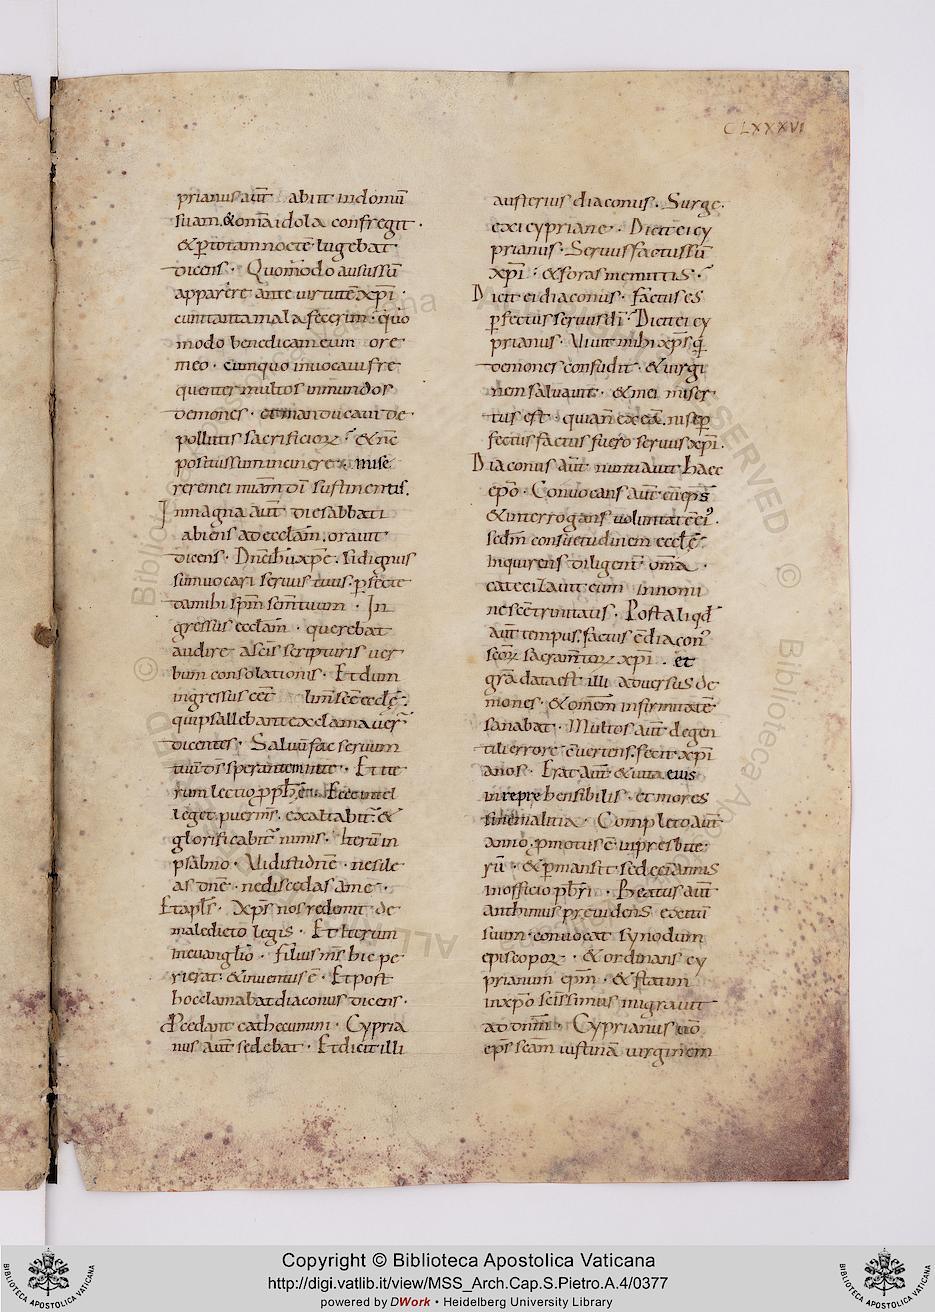 CLXXXVI
prianus aut̄ abiit in domū
suam. & om̄a idola confregit.
& p totam noctē lugebat
dicens. Quomodo ausus sū
apparere ante virtutē xp̄i.
cum tanta mala fecerim. quo
modo benedicam eum ore
meo. cum quo invocavi fre
quenter multos inmundos
demones. et manducavi de
pollutis sacrificiorꝝ. & nc̄
positus sum in cinere. mise
rere mei nuam dī sustinentis.
In magna aut̄ die sabbati
abiens ad eccl̄am. oravit
dicens. Dn̄e ih̄u xp̄e. si dignus
sum vocari servus tuus. pfecte
da mihi sp̄m scm̄ tuum. In
gressus eccl̄am. querebat
audire a scis scripturis ver
bum consolationis. Et dum
ingressus eēt lim̄ scē eccl̄ę.
qui psallebant exclamaver̄
dicentes. Salvū fac servum
tuū ds̄ sperantem in te. Et ite
rum lectio pph̄ē. Ecce intel
leget puer ms̄. exaltabit̄. &
glorificabit̄ nimis. Iterū in
psalmo. Vidisti dn̄e. ne sile
as dn̄e. ne discedas a me.
Et apls̄. Xps̄ nos redemit de
maledicto legis. Et iterum
in evangl̄io. filius ms̄ hic pe
rierat. & inventus ē. Et post
hoc clamabat diaconus dicens.
Pcedant cathecumini. Cypria
nus aut̄ sedebat. Et dicit illi
austerius diaconus. Surge.
exi cypriane. Dicit ei cy
prianus. Servus factus sū
xp̄i. & foras me mittis.
Dicit ei diaconus. factus es
pfectus servus dī. Dicit ei cy
prianus. Vivit mihi xps̄ q̄
demones confudit. & virgi
nem salvavit. & mei miser
tus est. quia n̄ exea. nisi p
fectus factus fuero servus xp̄i.
Diaconus aut̄ nuntiavit haec
ep̄o. Convocans aut̄ eū eps̄
& interrogans voluntatē ei.
sed̄m consuetudinem eccl̄ę
inquirens diligent̄ om̄a.
catecizavit eum in nomi
ne scē trinitatis. Post aliqd̄
aut̄ tempus. factus ē diacon
scorꝝ sacram̄torꝝ xp̄i. et
gr̄a data est illi adversus de
mones. & omēm infirmitatē
sanabat. Multos aut̄ de gen
tili errore c̄vertens. fecit xp̄i
anos. Erat aut̄ & vita eius
inreprehensibilis. et mores
sine malitia. Completo aut̄
anno. pmotus ē in presbite
rū. & pmansit sedeci annis
in officio pbr̄i. Beatus aut̄
anthimus previdens exitū
suum. convocat synodum
episcoporꝝ. & ordinans cy
prianum ep̄m. & statim
in xp̄o scissimus migravit
ad dn̄m. Cyprianus vō
eps̄ scam iustinā virginem
Copyright © Biblioteca Apostolica Vaticana
http://digi.vatlib.it/view/MSS_Arch.Cap.S.Pietro.A.4/0377
powered by DWork • Heidelberg University Library